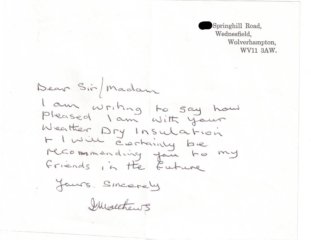 Springhill Road,
Wednesfield,
Wolverhampton,
WV11 3AW.
Dear Sir/Madam
I am writing to say how
pleased I am with your
Weather Dry Insulation
+ I will certainly be
recommending you to my
friends in the future
Yours Sincerely
Matthews